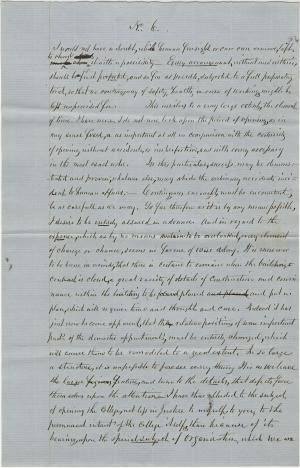 No. 6.
I would not have a doubt, which human foresight or care can remove, left
to chance with a possibility. Every arrangement, without and within,
should be first perfected, and as far as possible, subjected to a full preparatory
trial, so that no contingency of safety, health, or ease of working, might be
left unprovided for. This involves to a very large extent, the element
of time. I have never, I do not now look upon the period of opening, as in
any sense fixed, or as important at all in comparison with the certainty
of opening without accident, or imperfection, and with every accompany
in the most exact order. In this particular, success, may be demons-
trated and proven; failure also, may abide the ordinary accidents, inci-
dent to human affairs. Contingencies enough, must be encountered,
be as careful as we may. So far therefore as it is by any means possible,
I desire to be entirely assured in advance. And in regard to the
expense, which is by no means to be overlooked, every element
of change or chance, seems in favor of some delay. It is moreover
to be borne in mind, that there is certain to remain when the building
contract is closed, a great variety of details of construction and conve-
nience within the building to be placed and put in
place, which will require time and thought and care. Indeed it has
just now become apparent, that the relative positions of some important
parts of the domestic apartments, must be entirely changed, which
will cause them to be remodeled to a great extent. In so large
a structure, it is impossible to foresee every thing. As we leave
the large general features, and turn to the details, these defects force
themselves upon the attention. I have thus alluded to the subject
of opening the College, not less in justice to myself, to you, & to the
permanent interest of the College itself, than because of its
bearing, upon the special subject of organization, which we are